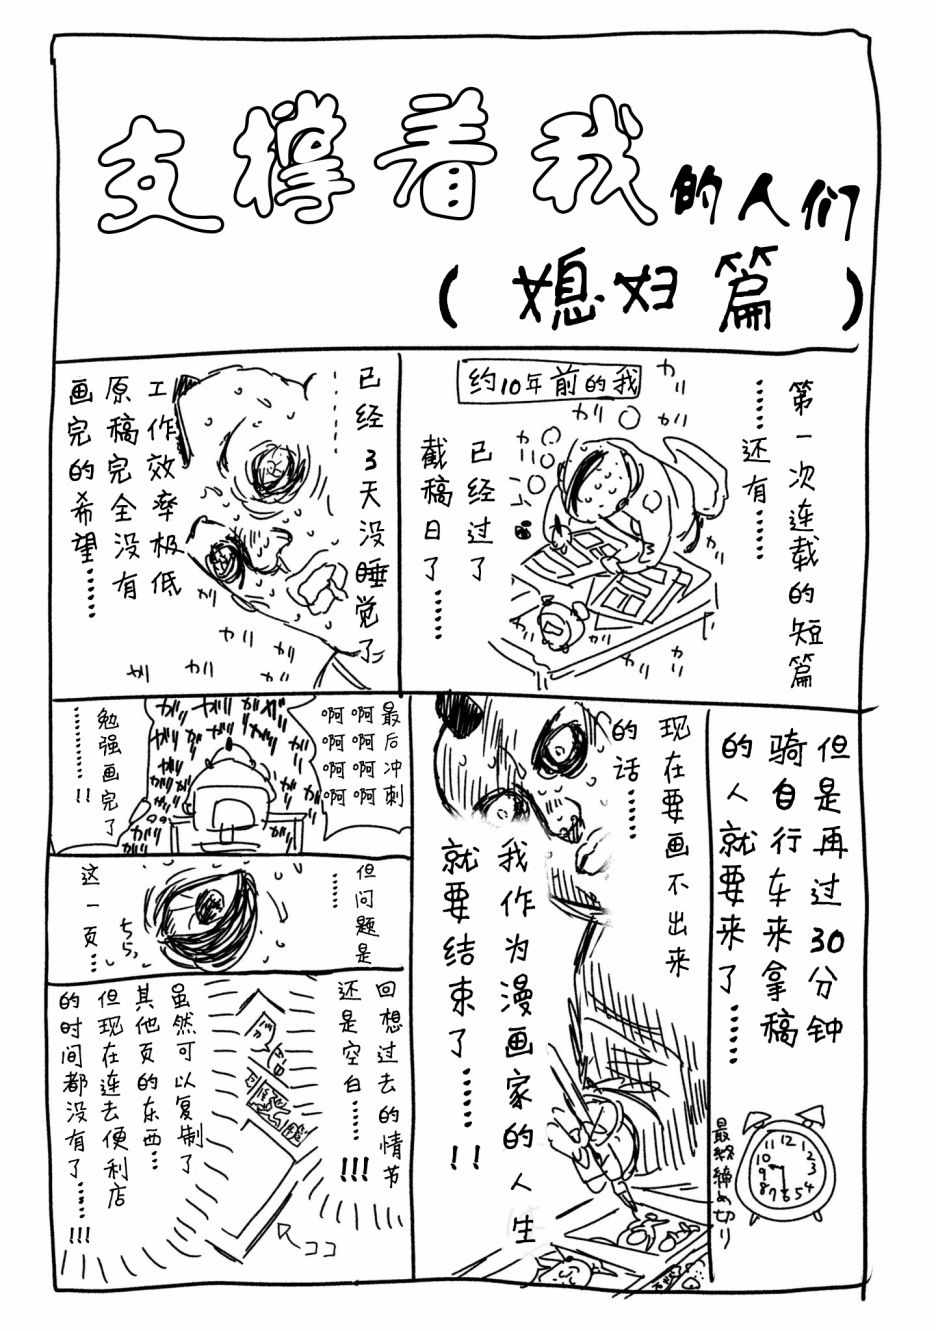 支撑着我的人们
(媳妇篇)
第一次连载的短篇
……还有……
约10年前的我
已经过了
截稿日了……
ガリ
ガリ
ガリ
ガリ
ガリ
ガリ
已经3天没睡觉了…
工作效率极低
原稿完全没有
画完的希望……
ガリ
ガリ
ガリ
ガリ
ガリ
但是再过30分钟
骑自行车来拿稿
的人就要来了……
最終締め切り
12
1
2
3
4
5
6
7
8
9
10
11
现在要画不出来
的话……
我作为漫画家的人生
就要结束了……!!
最后冲刺
啊啊啊啊
啊啊啊啊
ガリ
ガリ
ガリ
ガリ
ガリ
ガリ
ガリ
ガリ
勉强画完了
……!!
但问题是
……
这一页…
ちら,
回想过去的情节
还是空白……!!!
ココ
虽然可以复制了
其他页的东西…
但现在连去便利店
的时间都没有了……!!!